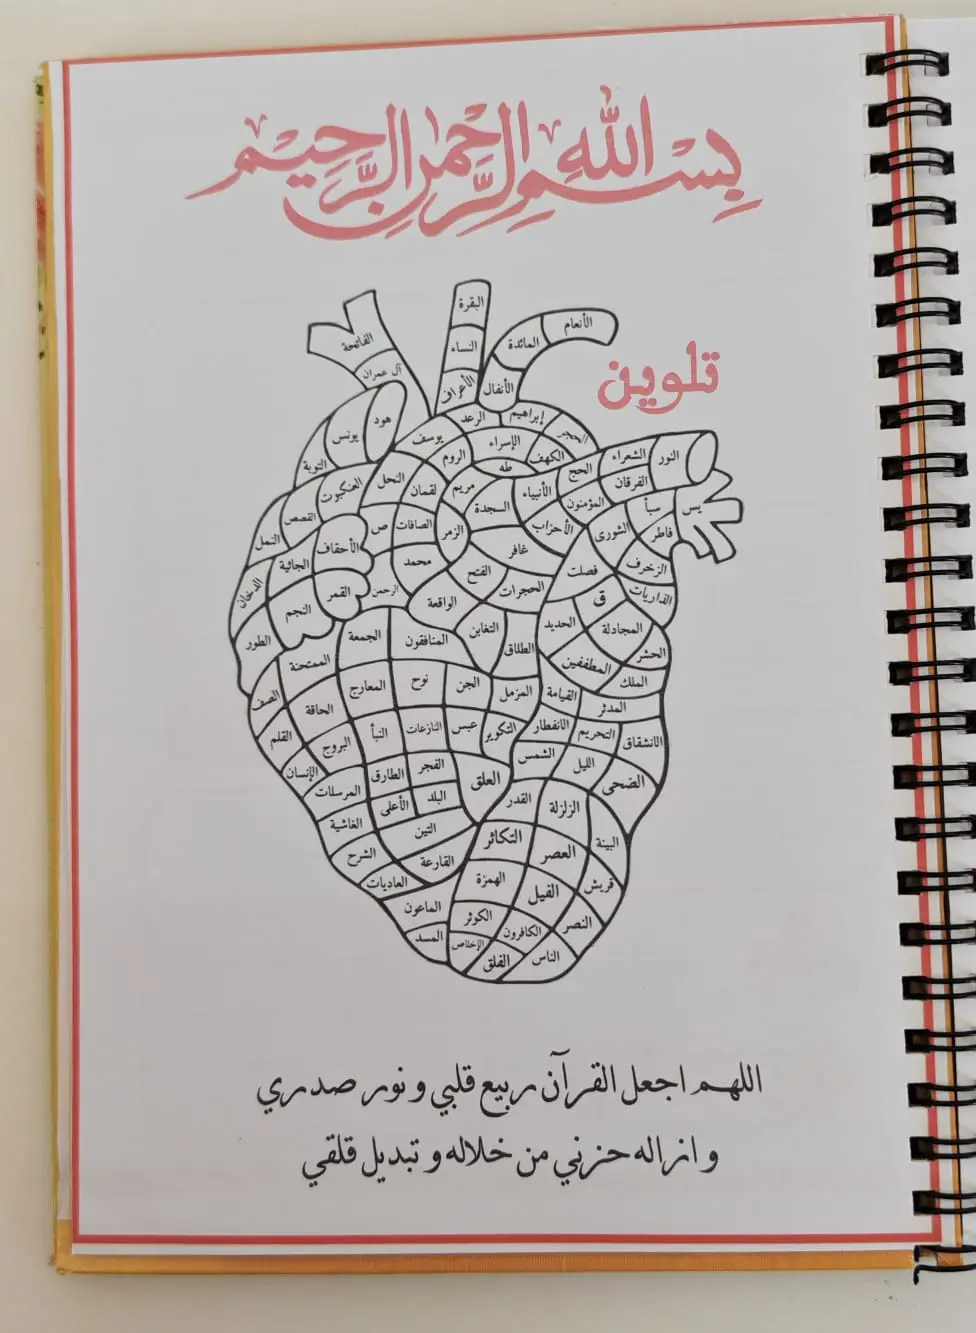 بسم الله الرحمن الرحيم
تلوين
البقرة
الأنعام
الفاتحة
النساء
المائدة
آل عمران
الأعراف
الأنفال
هود
يونس
التوبة
يوسف
الرعد
إبراهيم
الحجر
الإسراء
الكهف
الروم
طه
الحج
الشعراء
النور
العنكبوت
النحل
لقمان
مريم
السجدة
الأنبياء
المؤمنون
الفرقان
القصص
ص
الصافات
الزمر
الأحزاب
سبأ
يس
النمل
الأحقاف
غافر
الشورى
فاطر
الجاثية
محمد
الفتح
فصلت
الزخرف
الدخان
القمر
الرحمن
الواقعة
الحجرات
ق
الذاريات
النجم
الطور
الجمعة
المنافقون
التغابن
الطلاق
الحديد
المجادلة
الحشر
الممتحنة
المعارج
نوح
الجن
المزمل
القيامة
المطففين
الملك
الصف
الحاقة
المدثر
القلم
البروج
النبأ
النازعات
عبس
التكوير
الانفطار
التحريم
الانشقاق
الإنسان
الطارق
الفجر
العلق
الشمس
الليل
الضحى
المرسلات
الأعلى
البلد
القدر
الزلزلة
الغاشية
التين
التكاثر
العصر
البينة
الشرح
القارعة
العاديات
الهمزة
الفيل
قريش
الماعون
الكوثر
الكافرون
النصر
المسد
الإخلاص
الفلق
الناس
اللهم اجعل القرآن ربيع قلبي و نور صدري
و انزاله حزني من خلاله و تبديل قلقي